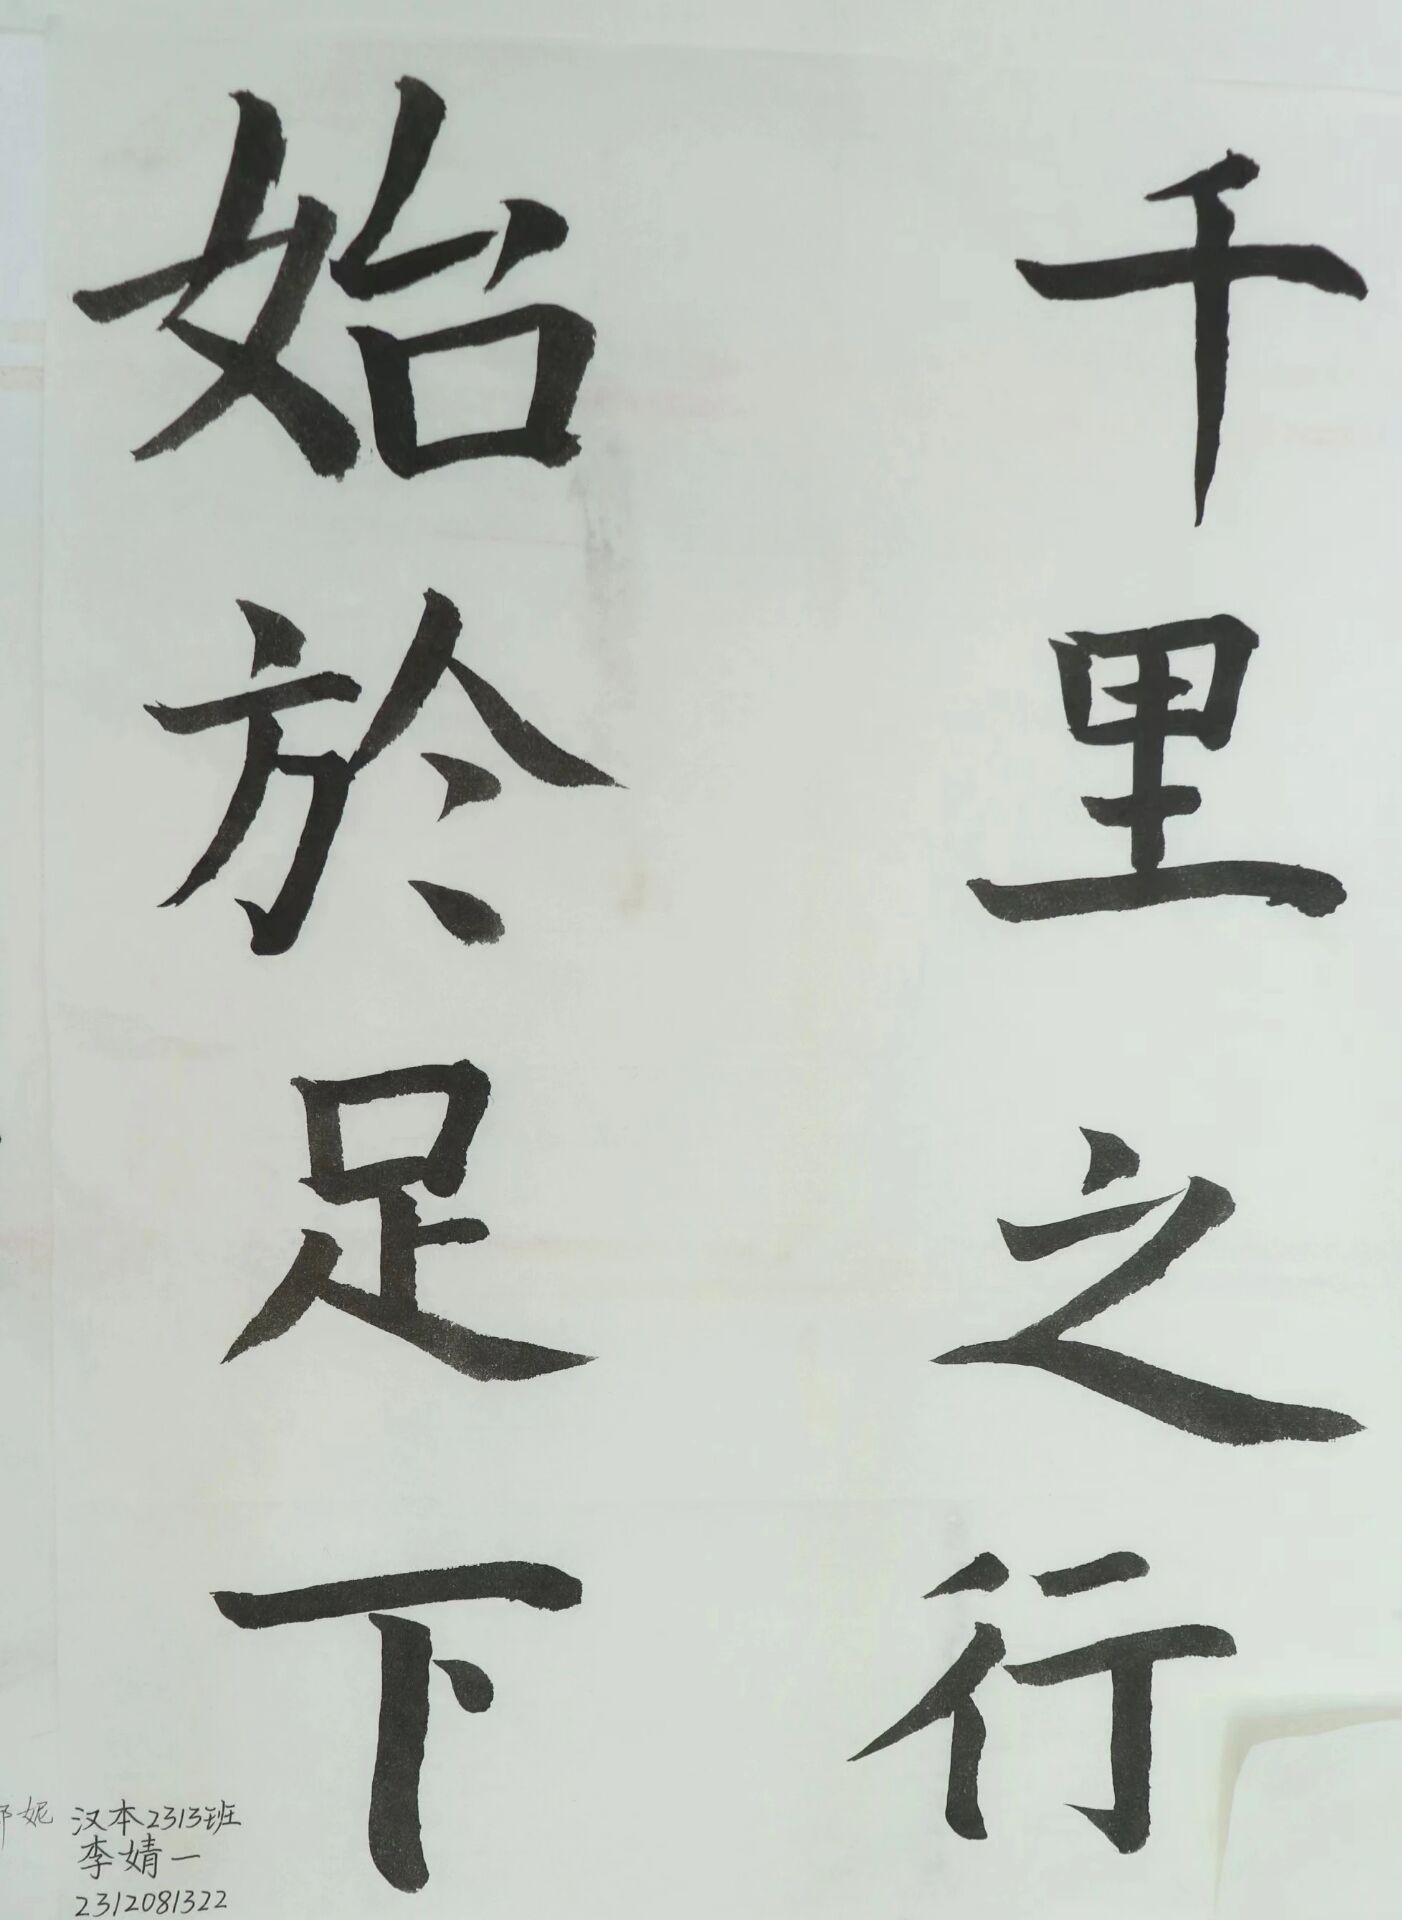 千里之行
始於足下
汉本2313班
李婧一
2312081322
妮